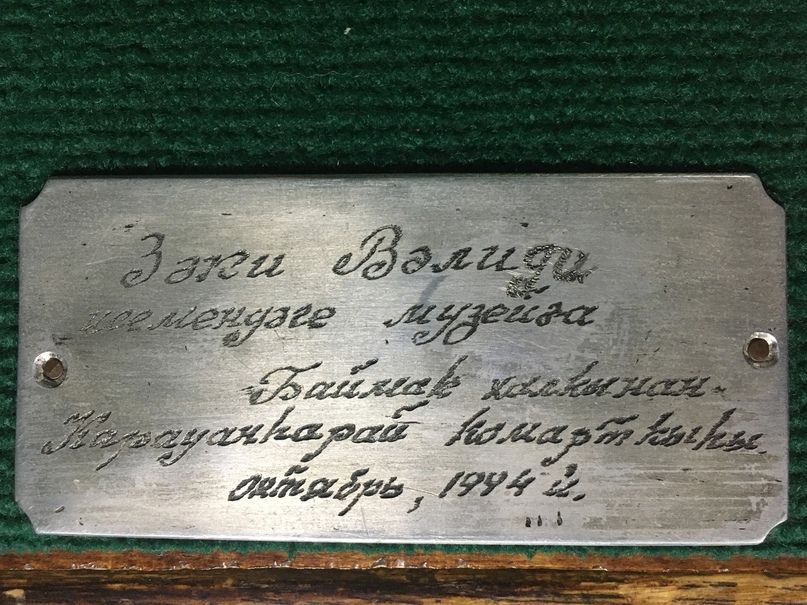 Зәки Вәлиди
исемендәге музейға
Баймак халкынан-
Карауанһарай комарткыһы.
октябрь, 1994 й.